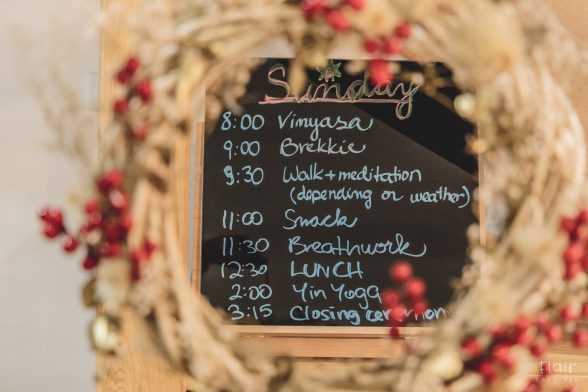 Sunday
8:00 Vinyasa
9:00 Brekkie
9:30 Walk + meditation
(depending or weather)
11:00 Snack
11:30 Breathwork
12:30 LUNCH
2:00 Yin Yoga
3:15 Closing
flair